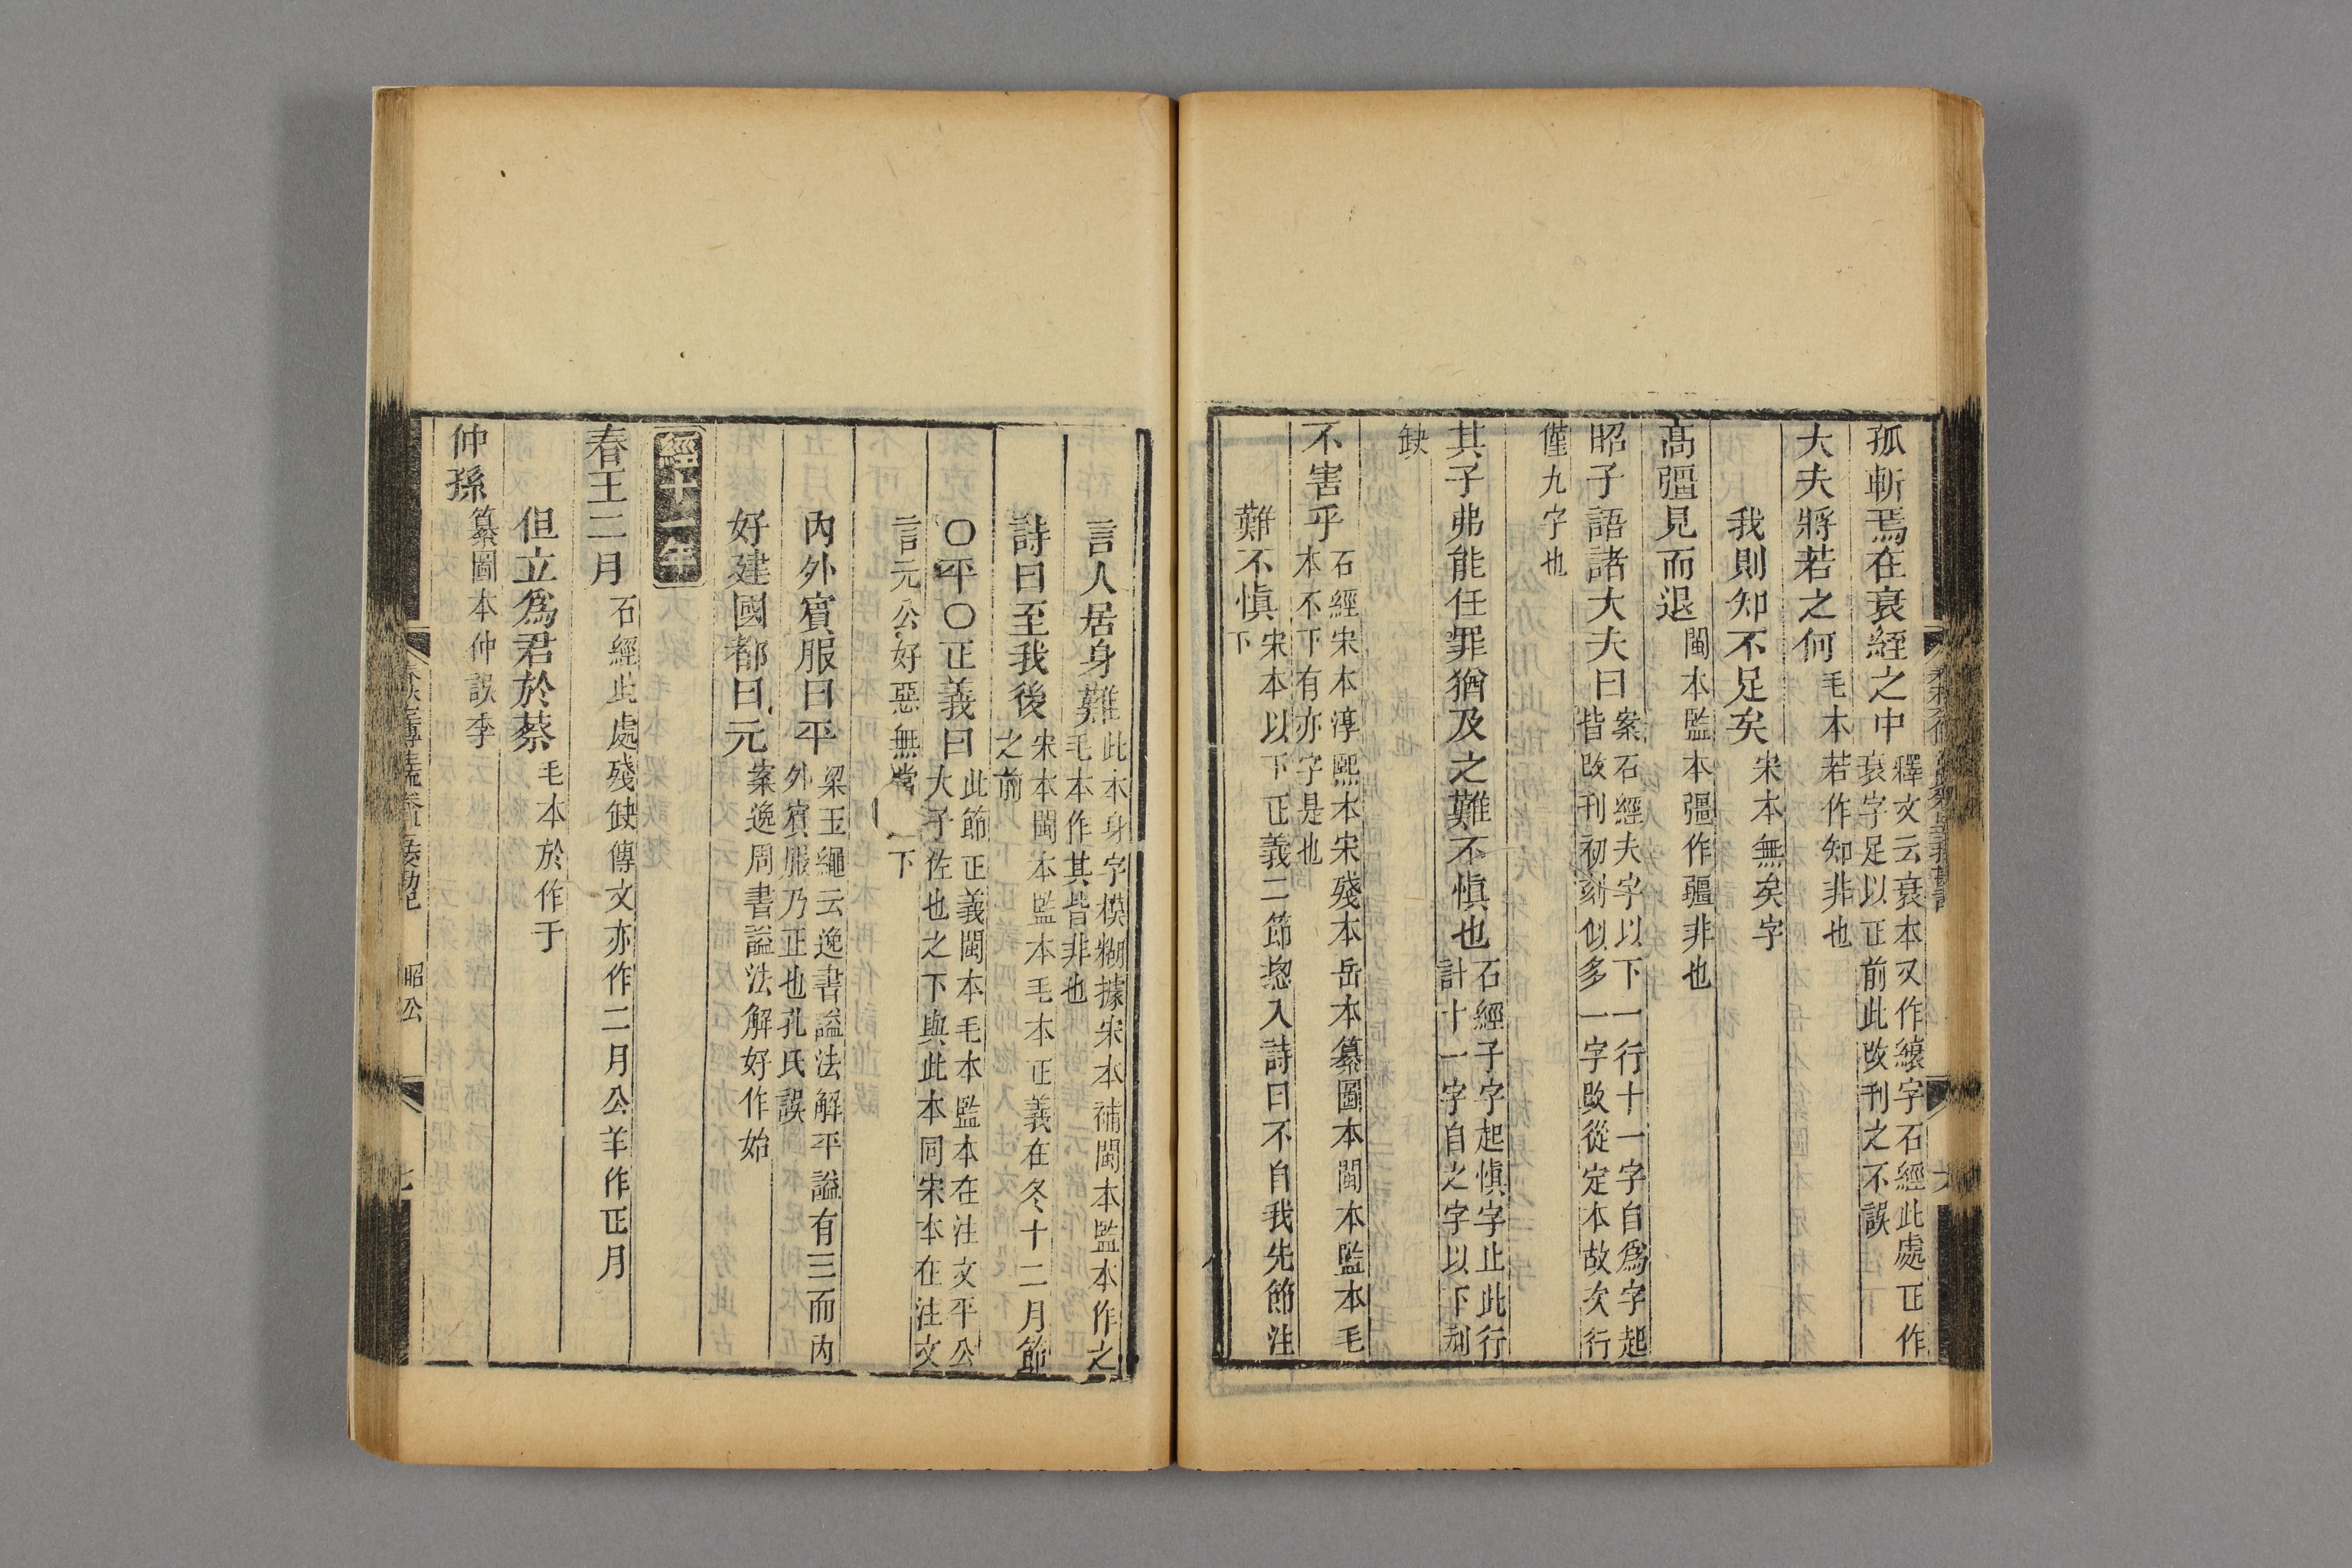 孤斬焉在衰絰之中 釋文云衰本又作縗字石經此處正作
衰字足以正前此改刊之不誤
大夫將若之何 毛本若作知非也
我則知不足矣 宋本無矣字
高彊見而退 閩本監本彊作疆非也
昭子語諸大夫曰 案石經夫字以下一行十一字自爲字起
皆改刊初刻似多一字改從定本故次行
僅九字也
其子弗能任罪猶及之難不愼也 石經子字起愼字止此行
計十一字自之字以下刓
缺
不害乎 石經宋本淳熙本宋殘本岳本纂圖本閩本監本毛
本不下有亦字是也
難不愼 宋本以下正義二節揔入詩曰不自我先節注
下
言人居身難 此本身字模糊據宋本補閩本監本作之
毛本作其皆非也
詩曰至我後 宋本閩本監本毛本正義在冬十二月節
之前
○平○正義曰 此節正義閩本毛本監本在注文平公
大子佐也之下與此本同宋本在注文
言元公好惡無常下
內外賓服曰平 梁玉繩云逸書謚法解平謚有三而內
外賓服乃正也孔氏誤
好建國都曰元 案逸周書謚法解好作始
經十一年
春王二月 石經此處殘缺傳文亦作二月公羊作正月
但立爲君於蔡 毛本於作于
仲孫 纂圖本仲誤季
昭公